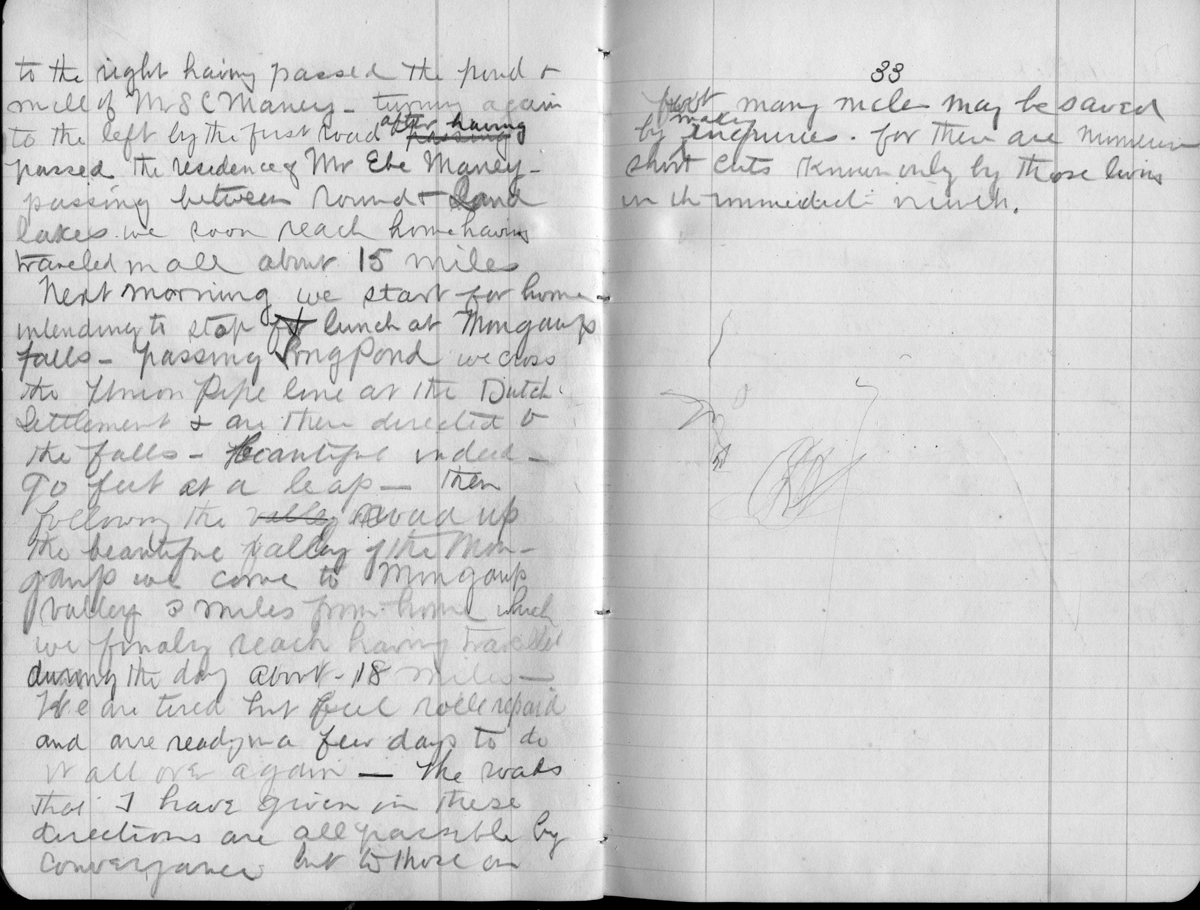 to the right having passed the pond &
mill of Mr S C Maney - turning again
to the left by the first road after having
passed the residence of Mr Ebe Maney -
passing between Round & Sand
lakes we soon reach home having
traveled in all about 15 miles
Next morning we start for home -
intending to stop for lunch at Mongaup
falls - passing Long Pond we cross
the Union Pipe line at the Dutch
Settlement & are then directed to
the falls - beautiful indeed -
90 feet at a leap - then
following the valley road up
the beautiful valley of the Mon-
gaup we come to Mongaup
Valley 3 miles from home which
we finaly reach having traveled
during the day about - 18 miles -
We are tired but feel well repaid
and are ready in a few days to do
it all over again - The roads
that I have given in these
directions are all passible by
conveyance but to those on
33
foot many miles may be saved
by making enquiries. for there are numerous
short cuts known only by those living
in the immediate vicinity.